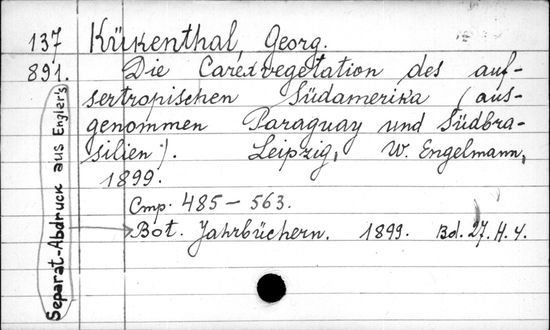 137 Kükenthal, Georg.
891. Die Carexvegetation des auf-
sertropischen Südamerika (aus-
genommen Paraguay und Südbra-
silien). Leipzig, W. Engelmann,
1899.
Cmp. 485-563.
Bot. Jahrbüchern. 1899. Bd. 27. H. 4.
Separat-Abdruck aus Engler's